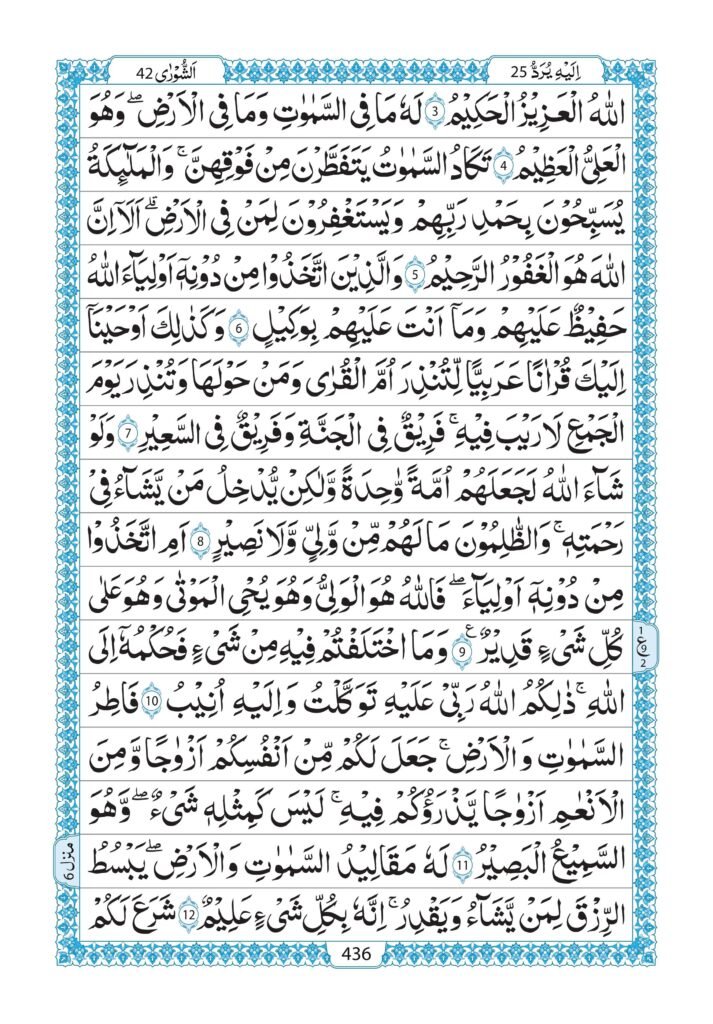 اِلَيْهِ يُرَدُّ 25
اَلشُّوْرٰى 42
اللّٰهُ الْعَزِيْزُ الْحَكِيْمُ ③ لَهٗ مَا فِى السَّمٰوٰتِ وَمَا فِى الْاَرْضِ ؕ وَهُوَ
الْعَلِىُّ الْعَظِيْمُ ④ تَكَادُ السَّمٰوٰتُ يَتَفَطَّرْنَ مِنْ فَوْقِهِنَّ ۚ وَالْمَلٰٓئِكَةُ
يُسَبِّحُوْنَ بِحَمْدِ رَبِّهِمْ وَيَسْتَغْفِرُوْنَ لِمَنْ فِى الْاَرْضِ ؕ اَلَاۤ اِنَّ
اللّٰهَ هُوَ الْغَفُوْرُ الرَّحِيْمُ ⑤ وَالَّذِيْنَ اتَّخَذُوْا مِنْ دُوْنِهٖۤ اَوْلِيَآءَ اللّٰهُ
حَفِيْظٌ عَلَيْهِمْ وَمَاۤ اَنْتَ عَلَيْهِمْ بِوَكِيْلٍ ⑥ وَكَذٰلِكَ اَوْحَيْنَاۤ
اِلَيْكَ قُرْاٰنًا عَرَبِيًّا لِّتُنْذِرَ اُمَّ الْقُرٰى وَمَنْ حَوْلَهَا وَتُنْذِرَ يَوْمَ
الْجَمْعِ لَا رَيْبَ فِيْهِ ۚ فَرِيْقٌ فِى الْجَنَّةِ وَفَرِيْقٌ فِى السَّعِيْرِ ⑦ وَلَوْ
شَآءَ اللّٰهُ لَجَعَلَهُمْ اُمَّةً وَّاحِدَةً وَّلٰكِنْ يُّدْخِلُ مَنْ يَّشَآءُ فِىْ
رَحْمَتِهٖ ۚ وَالظّٰلِمُوْنَ مَا لَهُمْ مِّنْ وَّلِىٍّ وَّلَا نَصِيْرٍ ⑧ اَمِ اتَّخَذُوْا
مِنْ دُوْنِهٖۤ اَوْلِيَآءَ ۖ فَاللّٰهُ هُوَ الْوَلِىُّ وَهُوَ يُحْىِ الْمَوْتٰى وَهُوَ عَلٰى
كُلِّ شَىْءٍ قَدِيْرٌ ⑨ ع وَمَا اخْتَلَفْتُمْ فِيْهِ مِنْ شَىْءٍ فَحُكْمُهٗۤ اِلَى
1 ع 2
اللّٰهِ ۚ ذٰلِكُمُ اللّٰهُ رَبِّىْ عَلَيْهِ تَوَكَّلْتُ وَاِلَيْهِ اُنِيْبُ ⑩ فَاطِرُ
السَّمٰوٰتِ وَالْاَرْضِ ۚ جَعَلَ لَكُمْ مِّنْ اَنْفُسِكُمْ اَزْوٰجًا وَّمِنَ
الْاَنْعٰمِ اَزْوٰجًا يَّذْرَؤُكُمْ فِيْهِ ۚ لَيْسَ كَمِثْلِهٖ شَىْءٌ ۖ وَّهُوَ
السَّمِيْعُ الْبَصِيْرُ ⑪ لَهٗ مَقَالِيْدُ السَّمٰوٰتِ وَالْاَرْضِ ۖ يَبْسُطُ
منزل 6
الرِّزْقَ لِمَنْ يَّشَآءُ وَيَقْدِرُ ۚ اِنَّهٗ بِكُلِّ شَىْءٍ عَلِيْمٌ ⑫ شَرَعَ لَكُمْ
436